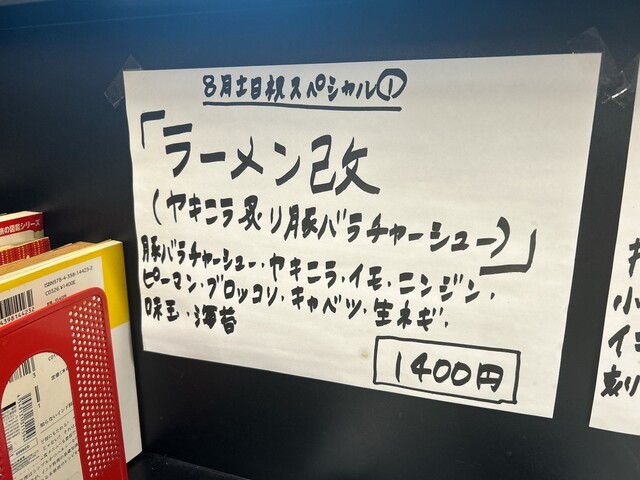 8月土日祝スペシャル①
「ラーメン改
(ヤキニラ炙り豚バラチャーシュー)」
豚バラチャーシュー・ヤキニラ・イモ・ニンジン・
ピーマン・ブロッコリ・キャベツ・生ネギ・
味玉・海苔
1400円
ISBN978-4-398-14423-2
小
刻